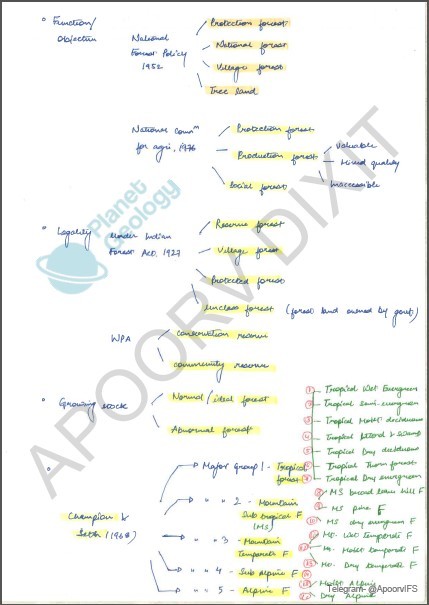 Function/
Objective
National
Forest Policy
1952
Protection forest
National forest
Village forest
Tree land
National Commⁿ
for agri, 1976
Protection forest
Production forest
Social forest
Valuable
Mixed quality
Inaccessible
Legality
Under Indian
Forest Act, 1927
Reserve forest
Village forest
Protected forest
Unclass forest (forest land owned by govt)
WPA
conservation reserve
community reserve
Growing stock
Normal/ideal forest
Abnormal forest
Champion &
Seth (1968)
Major Group 1 - Tropical
forest
" " 2 - Mountain
Sub tropical F
(MS)
" " 3 - Mountain
Temperate F
" " 4 - Sub Alpine F 14
" " 5 - Alpine F
1 Tropical Wet Evergreen
2 Tropical Semi-evergreen
3 Tropical Moist deciduous
4 Tropical littoral & swamp
5 Tropical Dry deciduous
6 Tropical Thorn forest
7 Tropical Dry evergreen
8 MS broad leaf hill F
9 MS pine F
10 MS dry evergreen F
11 Mt. Wet temperate F
12 Mo. Moist temperate F
13 Mo. Dry temperate F
Moist Alpine
Dry Alpine
Planet
Geology
APOORV DIXIT
Telegram- @ApoorvIFS